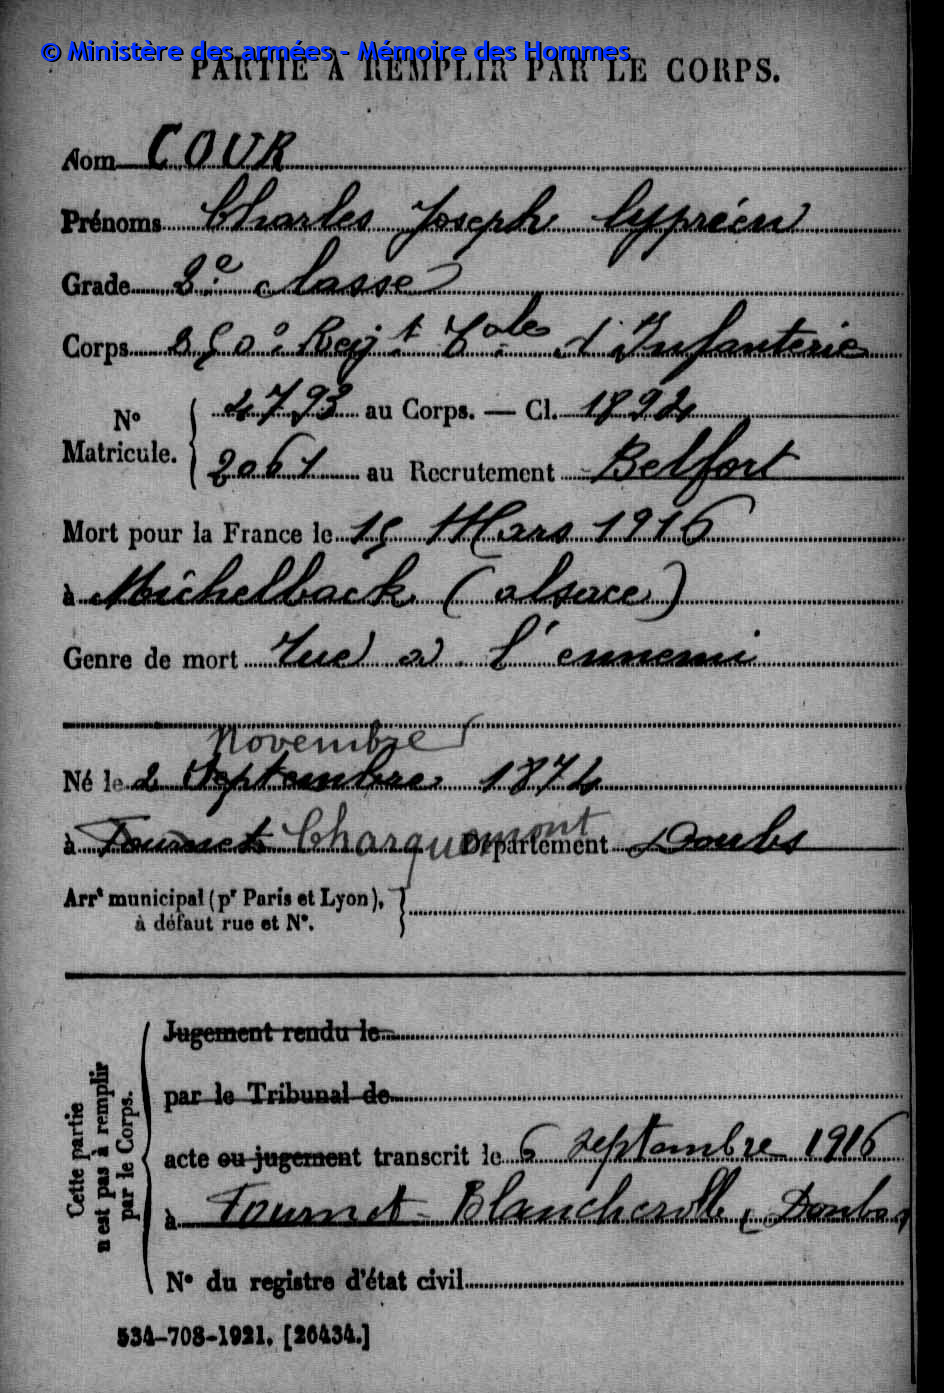 © Ministère des armées - Mémoire des Hommes
PARTIE À REMPLIR PAR LE CORPS.
Nom COUR
Prénoms Charles Joseph Cypréen
Grade 2e classe
Corps 350e Regt Tole d'Infanterie
No Matricule. 4793 au Corps. — Cl. 1894
2061 au Recrutement Belfort
Mort pour la France le 15 Mars 1916
à Michelback (alsace)
Genre de mort Tué à l'ennemi
Novembre
Né le 2 Septembre 1874
à Tournet Charquemont Département Doubs
Arrt municipal (pr Paris et Lyon),
à défaut rue et No.
Cette partie
n'est pas à remplir
par le Corps.
Jugement rendu le
par le Tribunal de
acte ou jugement transcrit le 6 septembre 1916
à Fournet-Blancheroche (Doubs)
No du registre d'état civil
534-708-1921. [26434.]